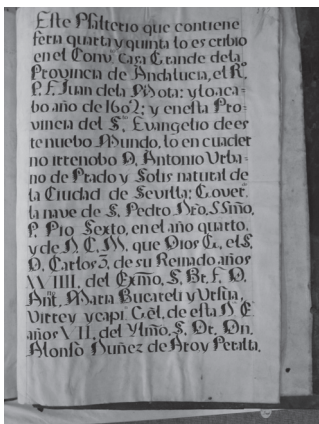 Este Psalterio que contiene
feria quarta y quinta lo escribio
en el Conv. Casa Grande de la
Provincia de Andalucia, el R.
P. F. Juan de la Mota: y lo aca=
bo año de 1602; y en esta Pro=
vincia del S. Evangelio de es
te nuebo Mundo, lo en cuader
no irrenobo D. Antonio Urba=
no de Prado y Solis natural de
la Ciudad de Sevilla; Gover.
la nave de S. Pedro Nro. SSmo.
P. Pio Sexto, en el año quarto,
y de N. C. M. que Dios G., el S.
D. Carlos 3, de su Reinado años
XVIIII, del Exmo. S. Br. F. D.
Ant. Maria Bucareli y Ursua,
Virrey y capi. Gel. de esta N E
años VII, del Yltmo. S. Dr. Dn.
Alonso Nuñez de Aro y Peralta.